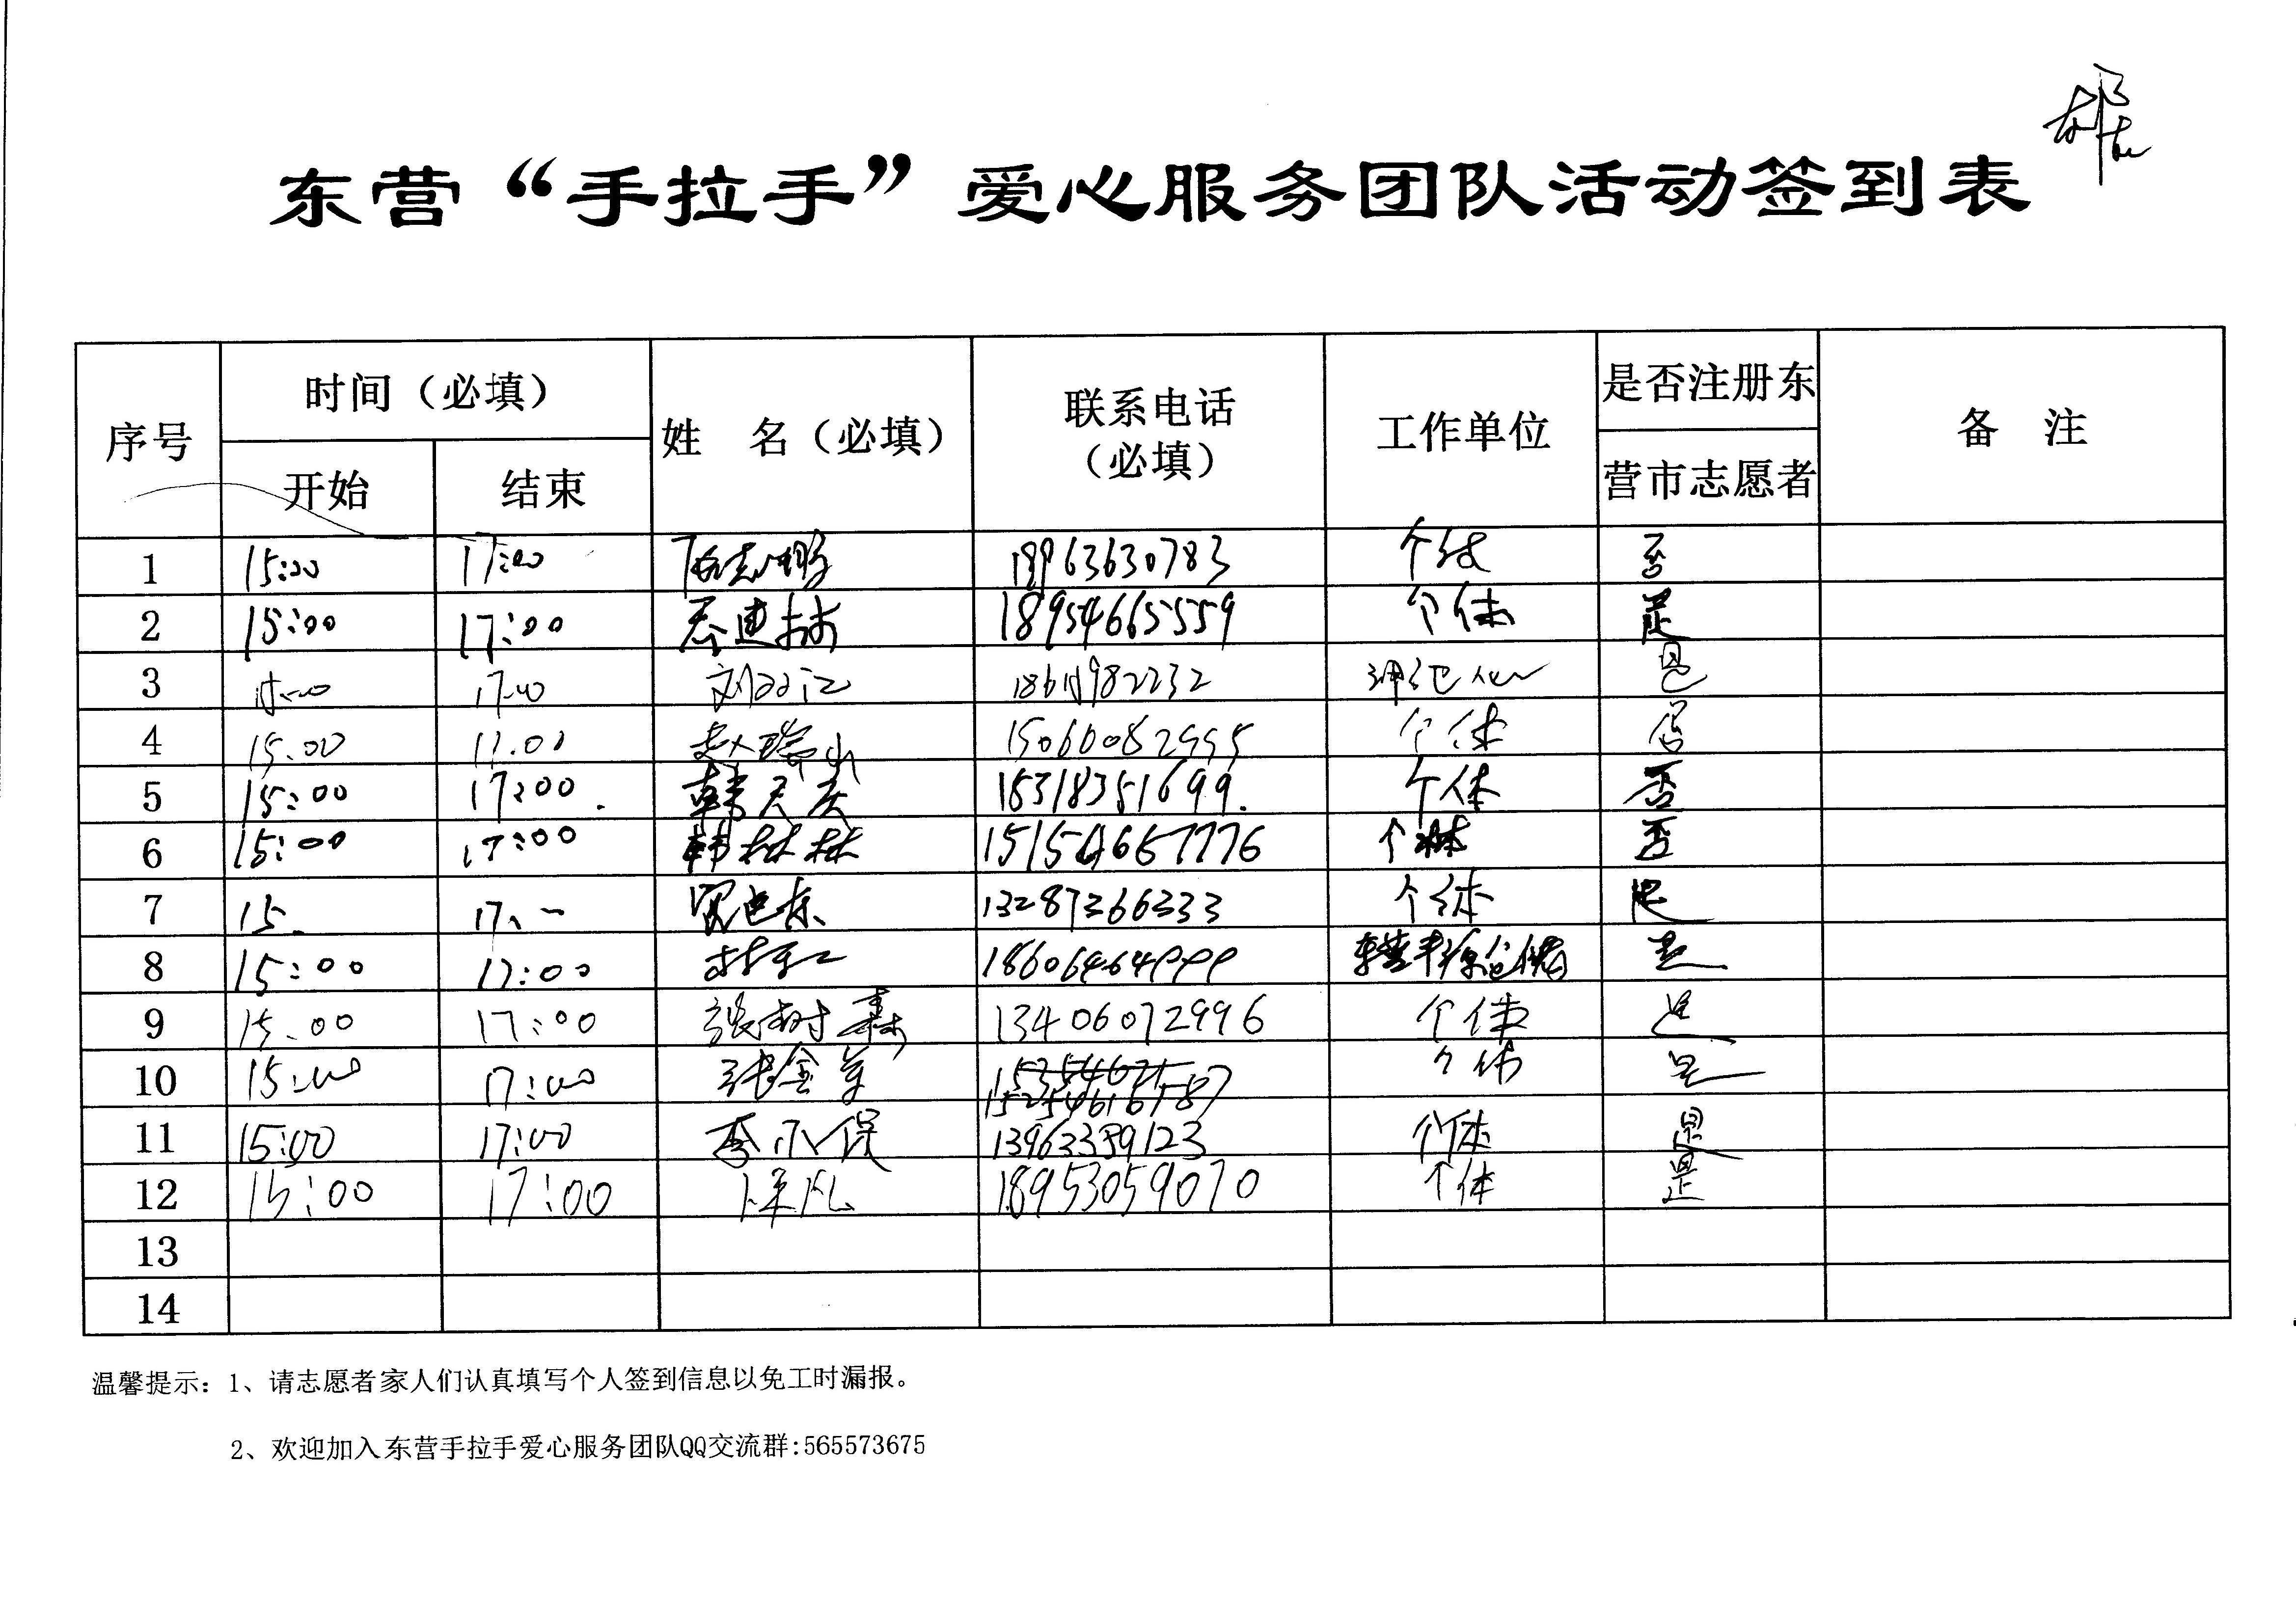 东营“手拉手”爱心服务团队活动签到表
序号 时间（必填） 姓 名（必填） 联系电话（必填） 工作单位 是否注册东营市志愿者 备 注
开始 结束
1 15:00 17:00 18963630783 个体 否
2 15:00 17:00 18954665559 个体 是
3 15:00 17:00 刘双江 是
4 15.00 17.00 赵瑞 15066082995 个体 否
5 15:00 17:00. 韩天庆 18318351699. 个体 否
6 15:00 17:00 韩林林 15154667776 个体 否
7 15. 17、一 13287366333 个体 是
8 15:00 17:00 林红 是
9 15.00 17:00 张树森 13406072996 个体 是
10 15:00 17:00 张金 个体 是
11 15:00 17:00 李小保 13963389123 个体 是
12 15:00 17:00 18953059070 个体 是
13
14
温馨提示：1、请志愿者家人们认真填写个人签到信息以免工时漏报。
2、欢迎加入东营手拉手爱心服务团队QQ交流群:565573675